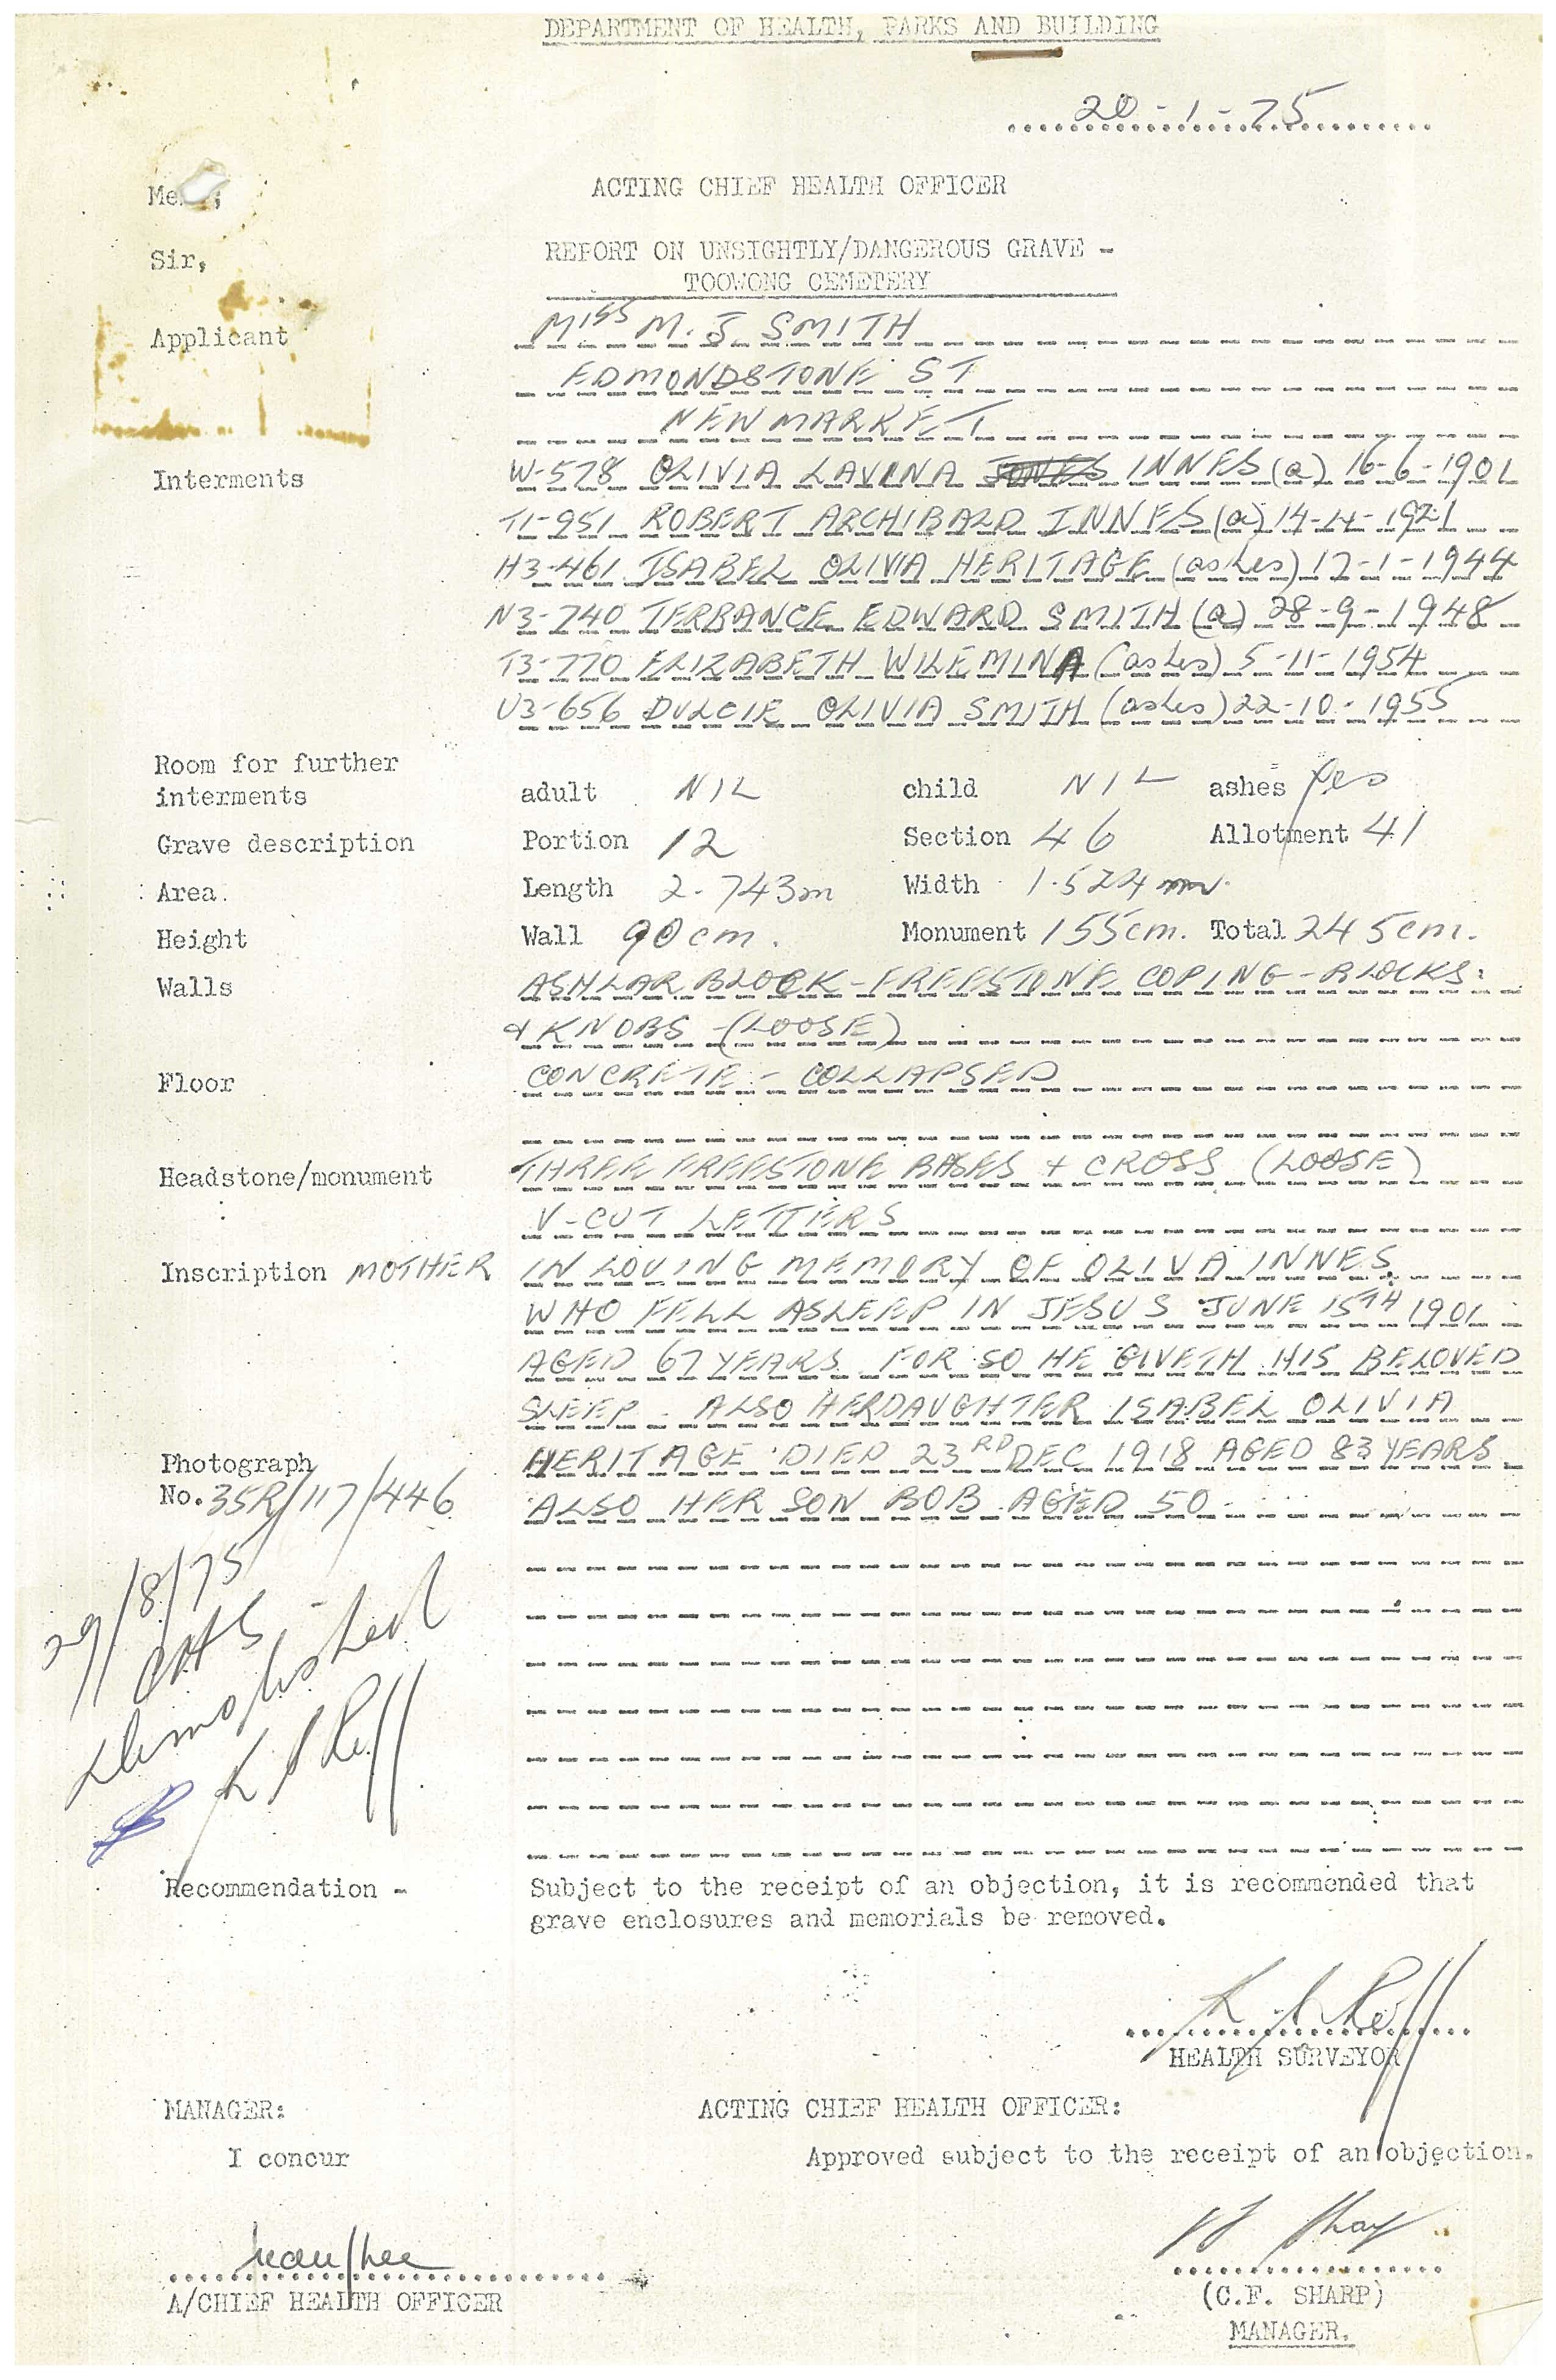 DEPARTMENT OF HEALTH, PARKS AND BUILDING
20-1-75
ACTING CHIEF HEALTH OFFICER
Sir,
REPORT ON UNSIGHTLY/DANGEROUS GRAVE -
TOOWONG CEMETERY
Applicant MISS M. J SMITH
EDMONDSTONE ST
NEWMARKET
Interments W-578 OLIVIA LAVINA JONES INNES (a) 16-6-1901
T1-951 ROBERT ARCHIBALD INNES (a) 14-4-1921
H3-461 ISABEL OLIVIA HERITAGE (ashes) 17-1-1944
N3-740 TERRANCE EDWARD SMITH (a) 28-9-1948
T3-770 ELIZABETH WILEMINA (ashes) 5-11-1954
U3-656 DULCIE OLIVIA SMITH (ashes) 22-10-1955
Room for further
interments adult NIL child NIL ashes Yes
Grave description Portion 12 Section 46 Allotment 41
Area. Length 2.743m Width 1.524m.
Height Wall 90cm. Monument 155cm. Total 245cm.
Walls ASHLAR BLOCK - FREESTONE COPING - BLOCKS
& KNOBS - (LOOSE)
Floor CONCRETE - COLLAPSED
Headstone/monument THREE FREESTONE BASES + CROSS (LOOSE)
V-CUT LETTERS
Inscription MOTHER IN LOVING MEMORY OF OLIVA INNES
WHO FELL ASLEEP IN JESUS JUNE 15TH 1901
AGED 67 YEARS FOR SO HE GIVETH HIS BELOVED
SLEEP. ALSO HER DAUGHTER ISABEL OLIVIA
HERITAGE DIED 23RD DEC 1918 AGED 83 YEARS
Photograph
No. 35R/117/446 ALSO HER SON BOB AGED 50
29/8/75
demolished
Recommendation - Subject to the receipt of an objection, it is recommended that
grave enclosures and memorials be removed.
HEALTH SURVEYOR
MANAGER: ACTING CHIEF HEALTH OFFICER:
I concur Approved subject to the receipt of an objection.
A/CHIEF HEALTH OFFICER (C.F. SHARP)
MANAGER.